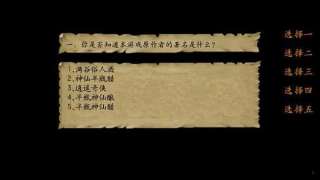 一、你是否知道本游戏原作者的署名是什么?
1,两谷俗人老
2,神仙半瓶醋
3,逍遥奇侠
4,半瓶神仙酿
5,半瓶神仙醋
选择一
选择二
选择三
选择四
选择五